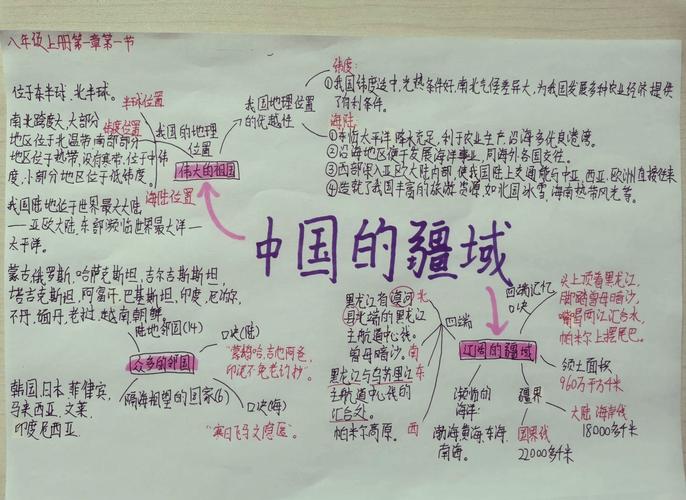 八年级上册第一章第一节
中国的疆域
伟大的祖国
我国的地理
位置
半球位置
位于东半球、北半球。
纬度位置
南北跨度大,大部分
地区位于北温带,南部部分
地区位于热带,没有寒带,位于中纬
度,小部分地区位于低纬度。
海陆位置
我国陆地位于世界最大大陆
—亚欧大陆,东部濒临世界最大洋—
太平洋。
我国地理位置
的优越性
纬度:
①我国纬度适中,光热条件好,南北气候差异大,为我国发展多种农业经济提供
了有利条件。
海陆:
①东临太平洋,降水充足,利于农业生产,沿海多优良港湾。
②沿海地区便于发展海洋事业,同海外各国交往。
③西部深入亚欧大陆内部,使我国陆上交通能与中亚、西亚、欧洲直接往来
④造就了我国丰富的旅游资源,如北国冰雪,海南热带风光等。
众多的邻国
陆地邻国(14)
蒙古,俄罗斯,哈萨克斯坦,吉尔吉斯斯坦,
塔吉克斯坦,阿富汗,巴基斯坦,印度,尼泊尔,
不丹,缅甸,老挝,越南,朝鲜。
口诀(陆)
“蒙俄哈,吉他阿巴,
印泥不免老约抄”。
隔海相望的国家(6)
韩国、日本、菲律宾、
马来西亚、文莱、
印度尼西亚.
口诀(海)
辽阔的疆域
四端
黑龙江省漠河 北
县北端的黑龙江
主航道中心线。
曾母暗沙。南
黑龙江与乌苏里江 东
主航道中心线的
汇合处。
帕米尔高原。西
四端记忆
口诀
头上顶着黑龙江,
脚踏曾母暗沙,
嘴喝两江汇合水,
帕米尔上摆尾巴。
领土面积
960万平方千米
疆界
大陆海岸线
18000多千米
国界线
22000多千米
濒临的
海洋:
渤海,黄海,东海,
南海。